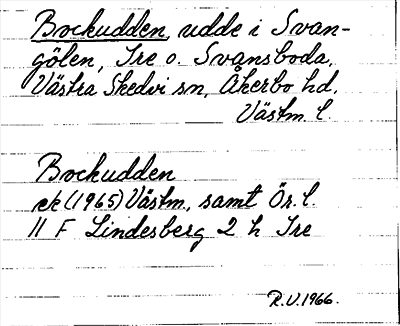 Bockudden, udde i Svan-
gölen, Tre o. Svånsboda,
Västra Skedvi sn, Åkerbo hd.
Västm. l.
Bockudden
ek (1965) Västm., samt Ör. l.
11 F Lindesberg 2 h Tre
R.V. 1966.